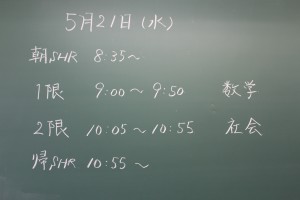 5月21日(水)
朝SHR 8:35～
1限 9:00～9:50 数学
2限 10:05～10:55 社会
帰SHR 10:55～